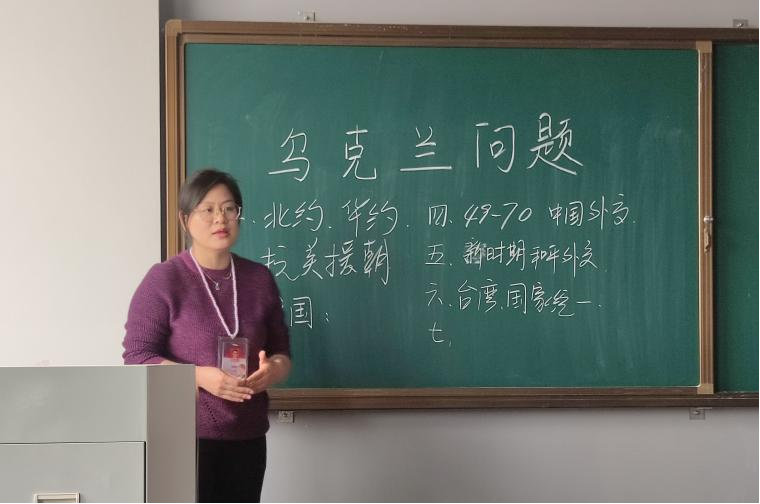 乌克兰问题
、北约、华约、
抗美援朝
国：
四、49-70 中国外交.
五、新时期和平外交.
六、台湾、国家统一.
七、